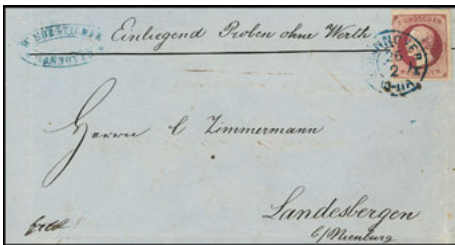 HANNOVER
Einliegend Proben ohne Werth
GROSCHEN
HANNOVER
2
Herrn C Zimmermann
Landesbergen
b/Nienburg.